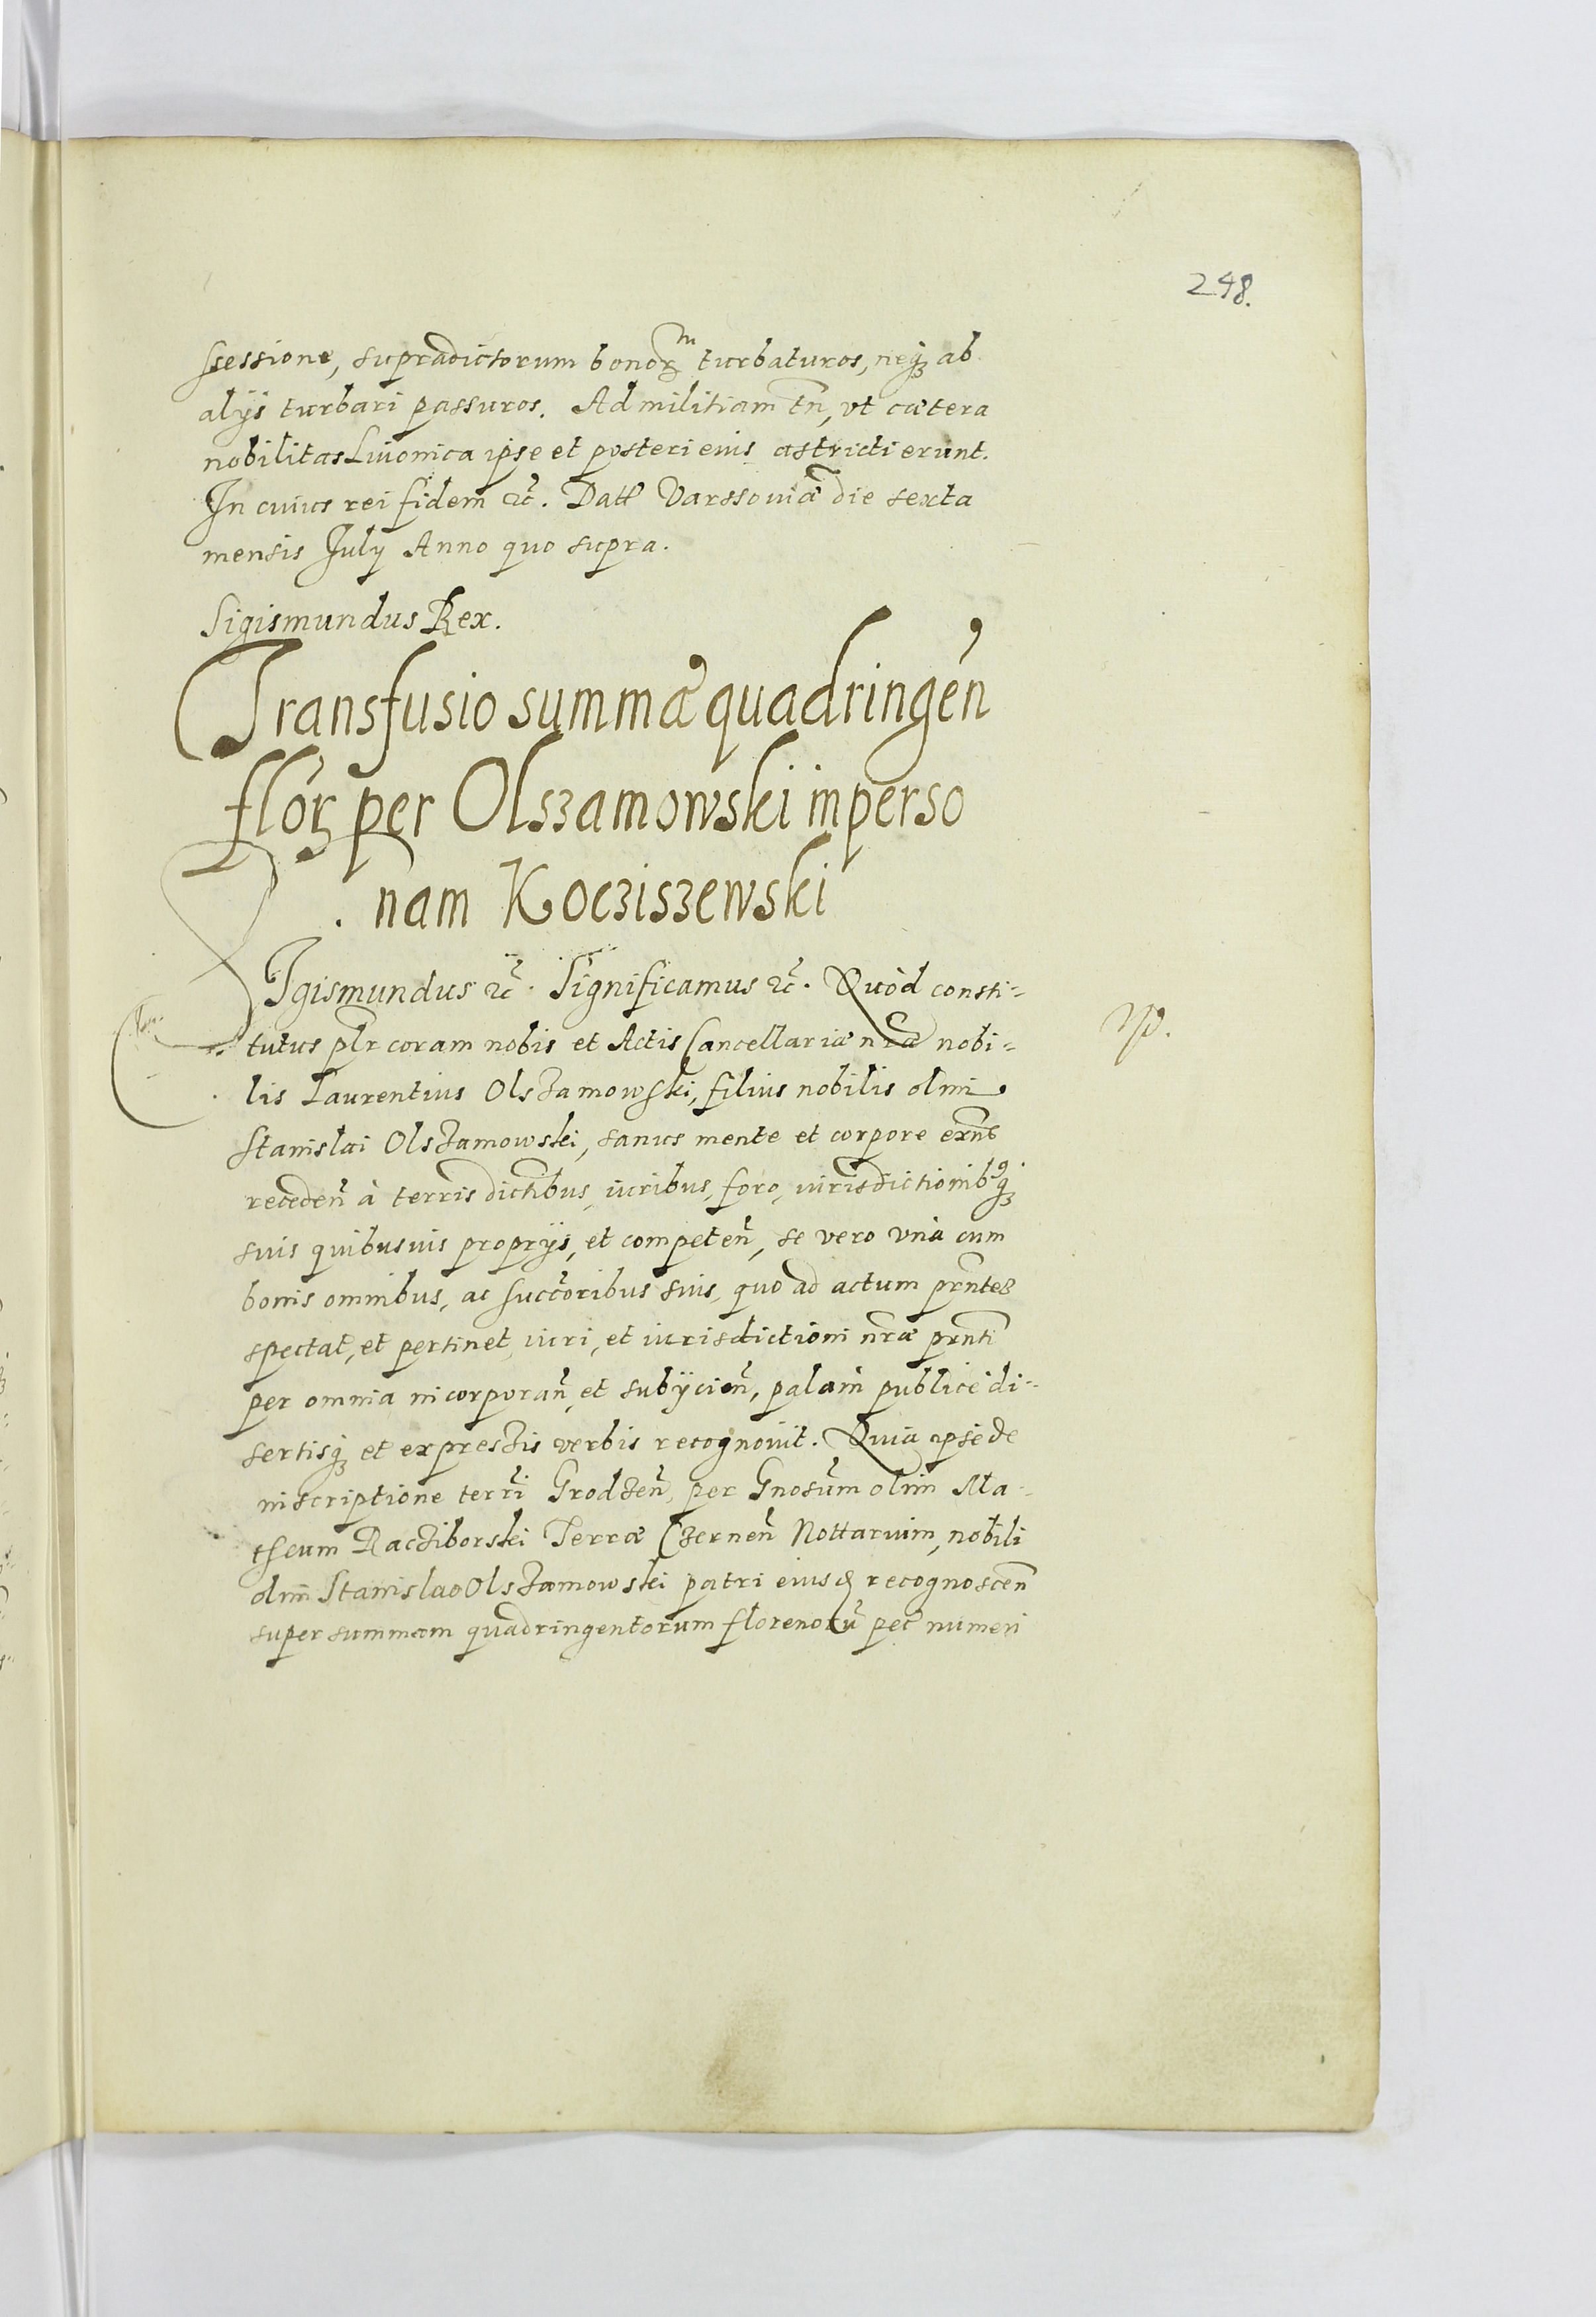 248.
ssessione, supradictorum bonorꝫ turbaturos, neqꝫ ab
alijs turbari passuros. Ad militiam tn̄, vt cætera
nobilitas Liuonica ipse et posteri eius astricti erunt.
In cuius rei fidem ꝛc̄. Datt Varssouiæ die sexta
mensis July Anno quo supra.
Sigismundus Rex.
Transfusio summæ quadringen̄
florꝫ per Olszamowski in perso
nam Kocziszewski
Sigismundus ꝛc̄. Significamus ꝛc̄. Quòd consti-
tutus plr̄ coram nobis et Actis Cancellariæ nr̄æ nobi-
lis Laurentius Olszamowski, filius nobilis olim
Stanislai Olszamowski, sanus mente et corpore exn̄s
receden̄ à terris dictibus, iuribus, foro, iurisdictionibꝰqꝫ
suis quibusuis proprijs, et competen̄, se vero vnà cum
bonis omnibus, ac succ̄oribus suis, quo ad actum prn̄tes
spectat, et pertinet, iuri, et iurisdictioni nr̄æ prn̄ti
per omnia incorporan̄, et subijcien̄, palàm publicè di-
sertisqꝫ et expressis verbis recognouit. Quia ipse de
inscriptione terrī Grodzen̄, per Gnosūm olim Ma-
theum Racziborski Terræ Czernen̄ Nottarium, nobili
olim Stanislao Olszamowski patri eiusd recognoscen̄
super summam quadringentorum florenorū pec̄ numeri